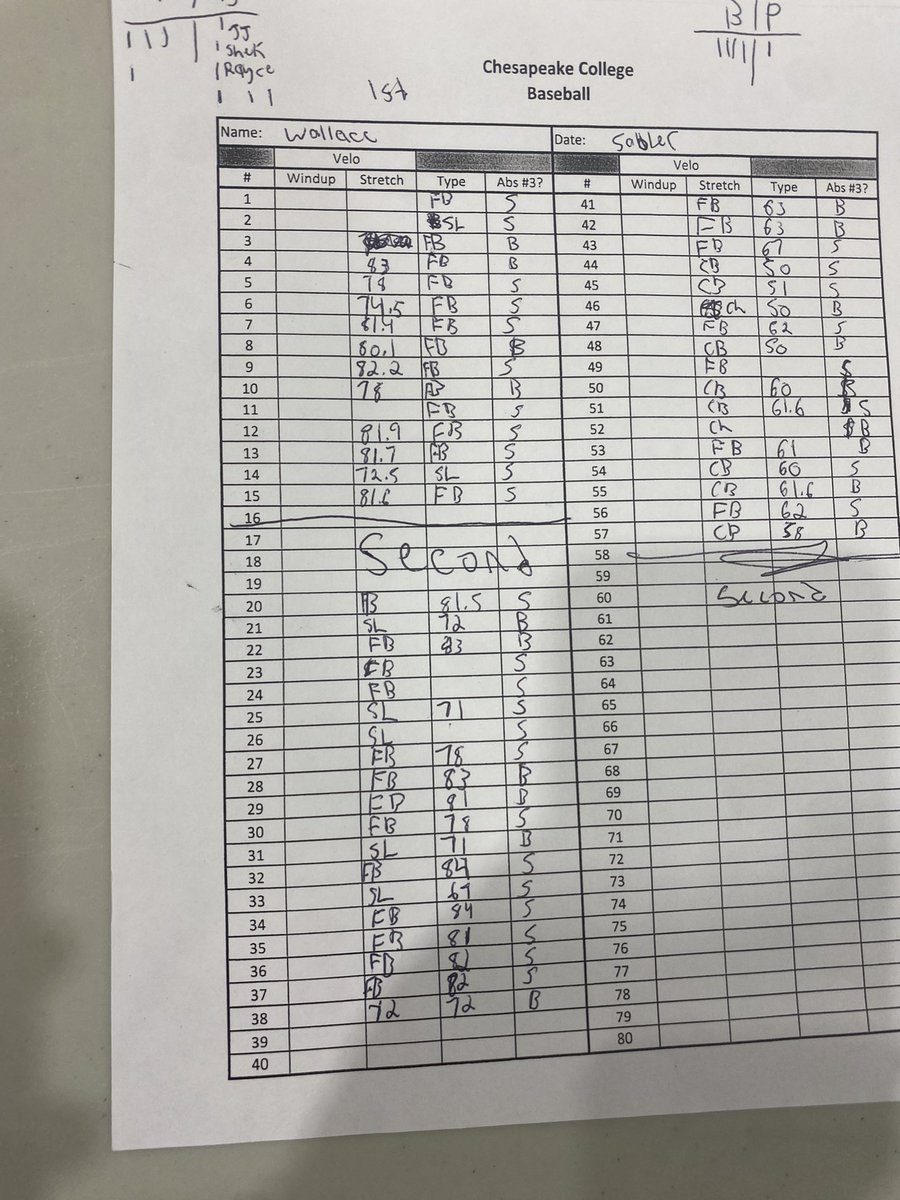 JJ
Shek
Royce
B | P
1st
Chesapeake College
Baseball
Name: Wallace Date: Sabler
Velo Velo
# Windup Stretch Type Abs #3? # Windup Stretch Type Abs #3?
1 FB S 41 FB 63 B
2 SL S 42 FB 63 B
3 FB B 43 FB 67 S
4 83 FB B 44 CB 50 S
5 78 FB S 45 CB 51 S
6 74.5 FB S 46 Ch 50 B
7 81.4 FB S 47 FB 62 S
8 80.1 FB B 48 CB 50 B
9 82.2 FB S 49 FB S
10 78 FB B 50 CB 60 B
11 FB S 51 CB 61.6 S
12 81.9 FB S 52 Ch B
13 81.7 FB S 53 FB 61 B
14 72.5 SL S 54 CB 60 S
15 81.6 FB S 55 CB 61.6 B
16 56 FB 62 S
17 57 CB 58 B
18 Second 58
19 59
20 FB 81.5 S 60 Second
21 SL 72 B 61
22 FB 83 B 62
23 FB S 63
24 FB S 64
25 SL 71 S 65
26 SL S 66
27 FB 78 S 67
28 FB 83 B 68
29 FB 81 B 69
30 FB 78 S 70
31 SL 71 B 71
32 FB 84 S 72
33 SL 69 S 73
34 FB 84 S 74
35 FB 81 S 75
36 FB 82 S 76
37 FB 82 S 77
38 72 72 B 78
39 79
40 80